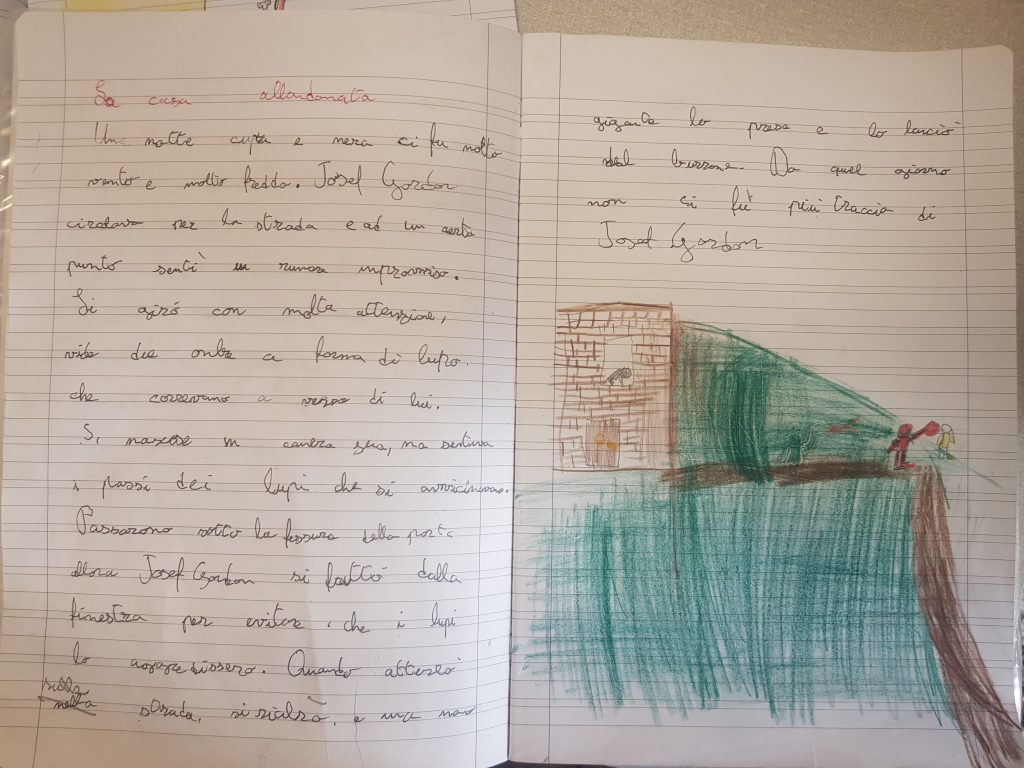 La casa abbandonata
Una notte cupa e nera ci fu molto
vento e molto freddo. Josef Gordon
cirdava per la strada e ad un certo
punto sentì un rumore improvviso.
Si girò con molta attenzione,
vide due ombre a forma di lupo.
che correvano a verso di lui.
Si nascose in camera sua, ma sentiva
i passi dei lupi che si avvicinavano.
Passarono sotto la fessura della porta
allora Josef Gordon si buttò dalla
finestra per evitare che i lupi
lo aggredissero. Quando atterrò
sulla
strada, si rialzò, e una mano
gigante lo prese e lo lanciò
dal burrone. Da quel giorno
non ci fù più traccia di
Josef Gordon